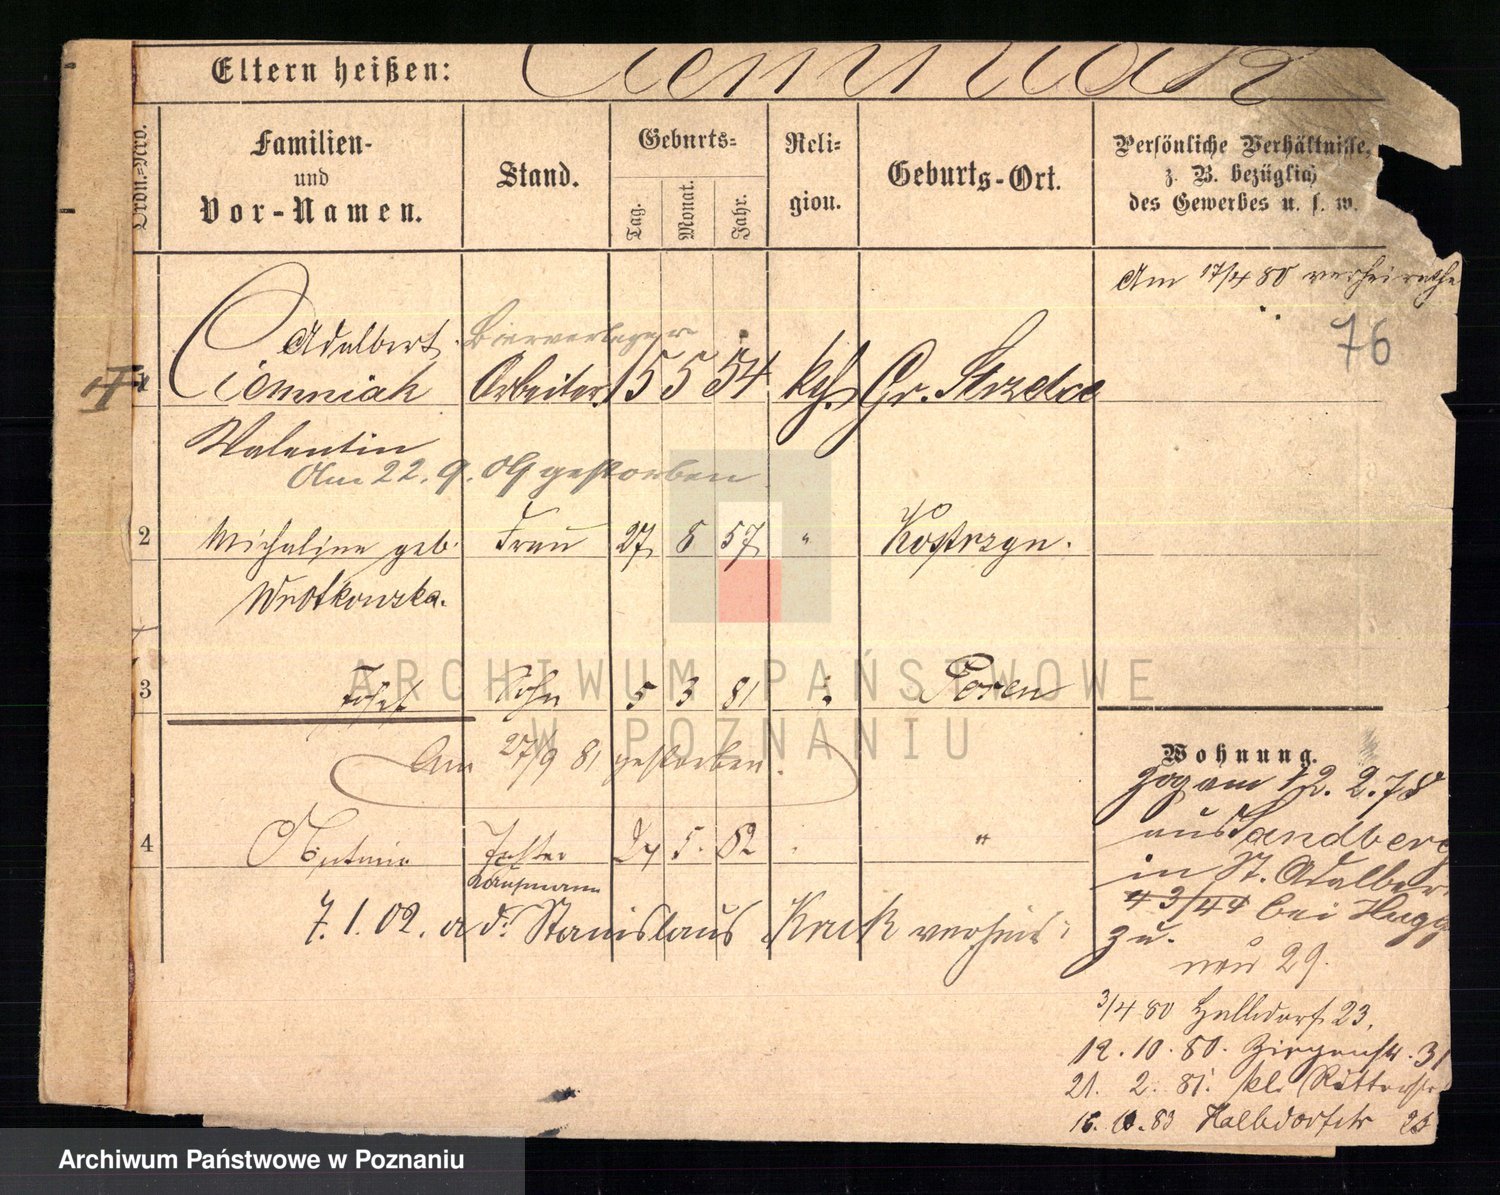 Eltern heißen: Ciemniak
Ordn.=Nro.
Familien-
und
Vor-Namen.
Stand.
Geburts=
Tag.
Monat.
Jahr.
Reli-
gion.
Geburts-Ort.
Persönliche Verhältnisse,
z. B. bezüglich
des Gewerbes u. s. w.
Am 17/4 80 verheirathe
76
Adalbert Bierverleger
1 Ciemniak Arbeiter 15 5 54 kath Gr. Strzelce
Valentin
Am 22. 9. 04 gestorben
2 Michalina geb. Frau 27 8 57 " Kostrzyn.
Wrotkowska.
3 Josef Sohn 5 3 81 " Posen
Am 27/9 81 gestorben.
4 Antonie Tochter 5. 82 "
Kaufmann
7. 1. 02. a d. Stanislaus verheir:
Wohnung.
zog am 12. 2. 78
aus Sandberg
in St. Adalber
43/44 bei
zu.
neu 29.
3/4 80 Halbdorf 23.
12. 10. 80. Ziegenstr. 31
21. 2. 81. kl. Ritterstr
16. 10. 83 Halbdorfstr 25
ARCHIWUM PAŃSTWOWE
W POZNANIU
Archiwum Państwowe w Poznaniu